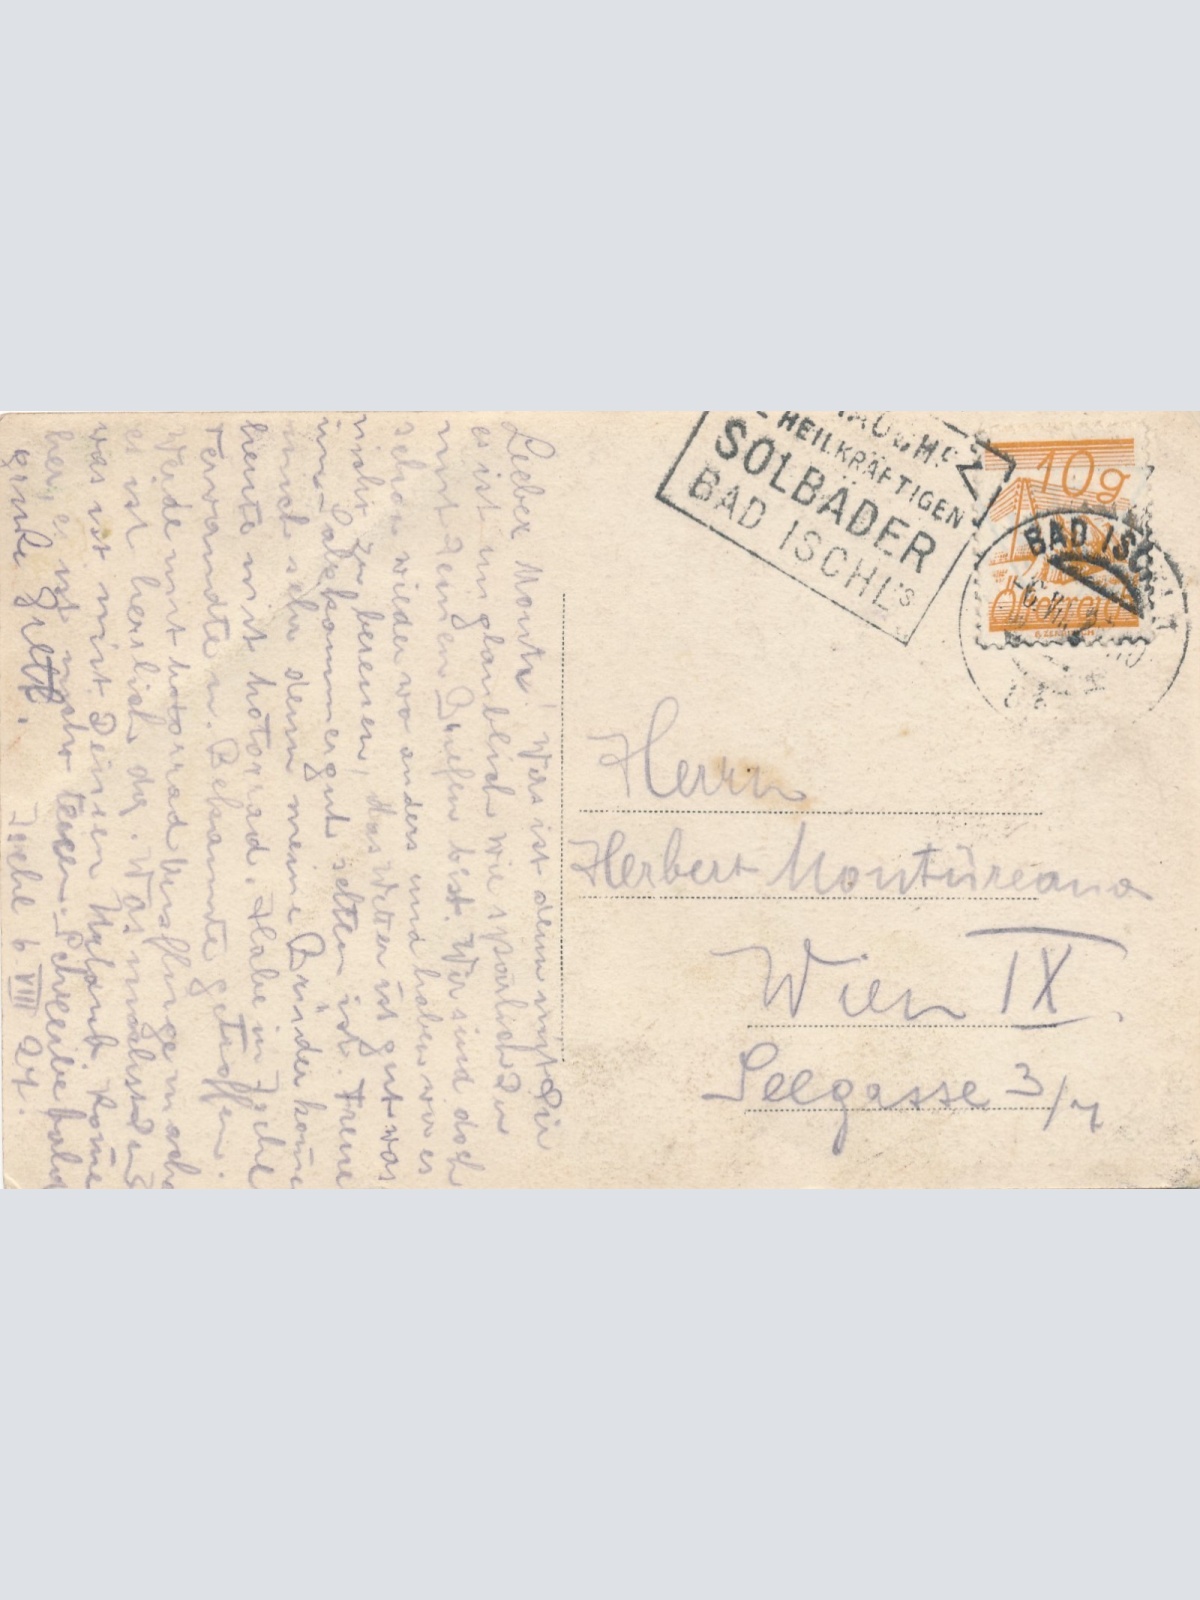 Lieber Montu! Was ist denn mit Dir
es ist unglaublich wie spärlich Du
mit Deinen Briefen bist. Wir sind doch
schon wieder wo anders und haben was es
nicht zu bereuen, das Wetter ist gut was
im Salzkammergut selten ist. Freue
mich sehr denn meine Brüder kome
heute mit Motorrad. Habe in Ischl
Verwandte u. Bekannte getroffen.
Werde mit Motorrad Ausflüge mach
es ist herrlich da. Was machst Du
was ist mit Deinen Urlaub kome
her, es ist nicht teuer. Schreibe bald
Grete.
Ischl 6 VIII 27.
HEILKRÄFTIGEN
SOLBÄDER
BAD ISCHL'S
10g
Österreich
BAD ISCHL
6.VIII.2
Herrn
Herbert Montureano
Wien IX.
Seegasse 3/7